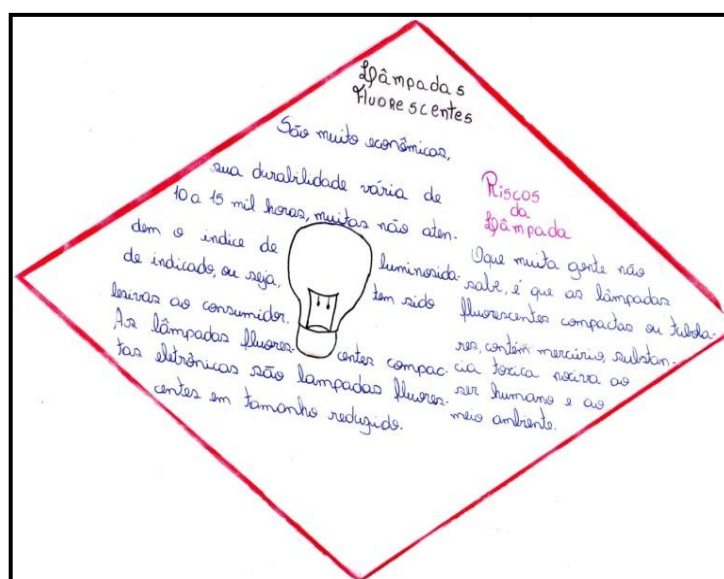 Lâmpadas
Fluorescentes
São muito econômicas,
sua durabilidade vária de
10 a 15 mil horas, muitas não aten-
dem o indice de luminosida-
de indicado, ou seja, tem sido
lesivas ao consumidor.
As lâmpadas fluores- centes compac-
tas eletrônicas são lampadas fluores-
centes em tamanho reduzido.
Riscos
da
Lâmpada
Oque muita gente não
sabe, é que as lâmpadas
fluorescentes compactas ou tubola-
res, contém mercúrio, substan-
cia toxica nociva ao
ser humano e ao
meio ambiente.